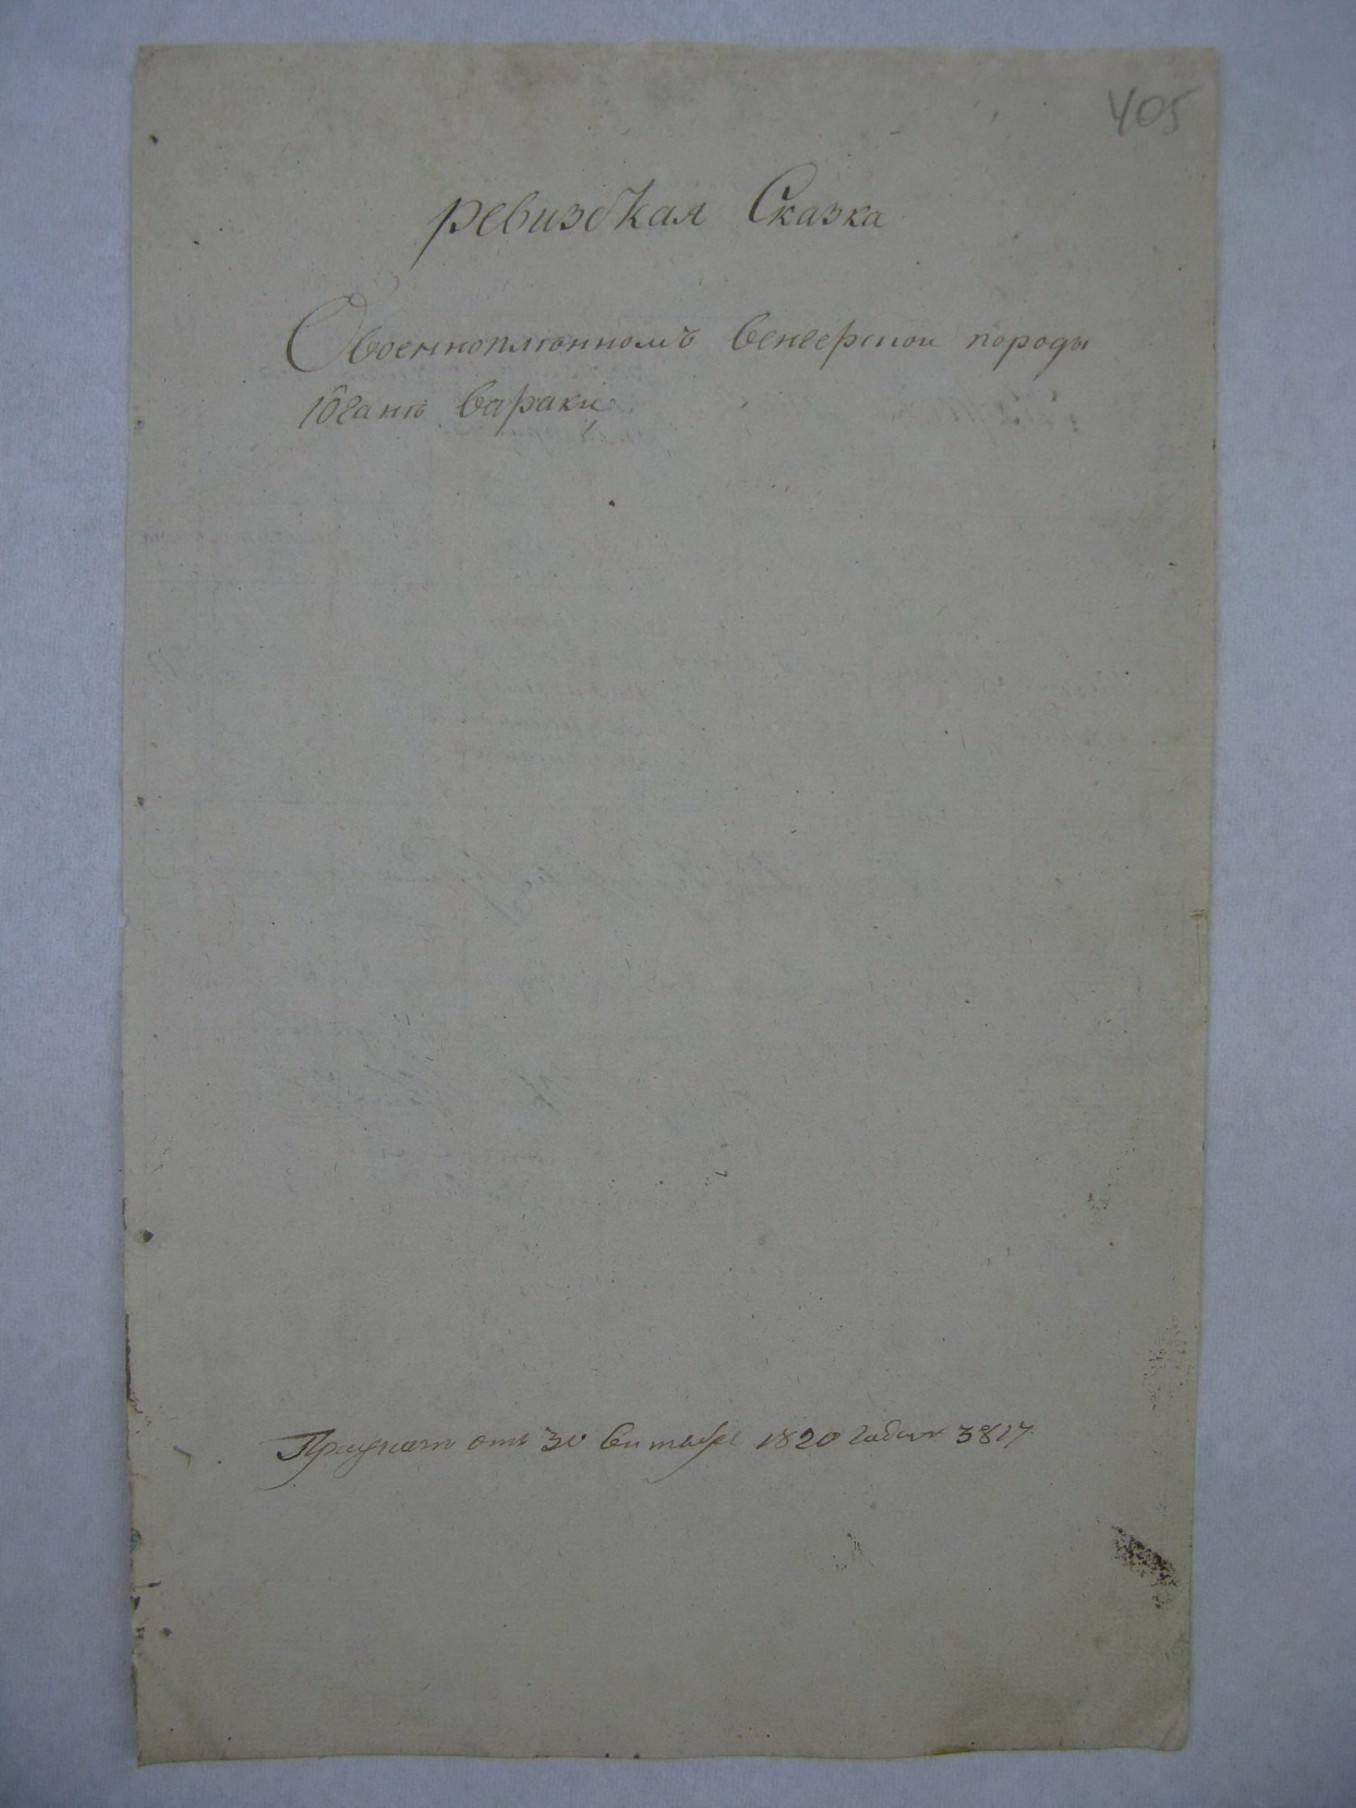 405
ревизская Сказка
Овоеннопленномъ венгерской породы
Югане вараки
от 30 Сентября 1820 года 3817